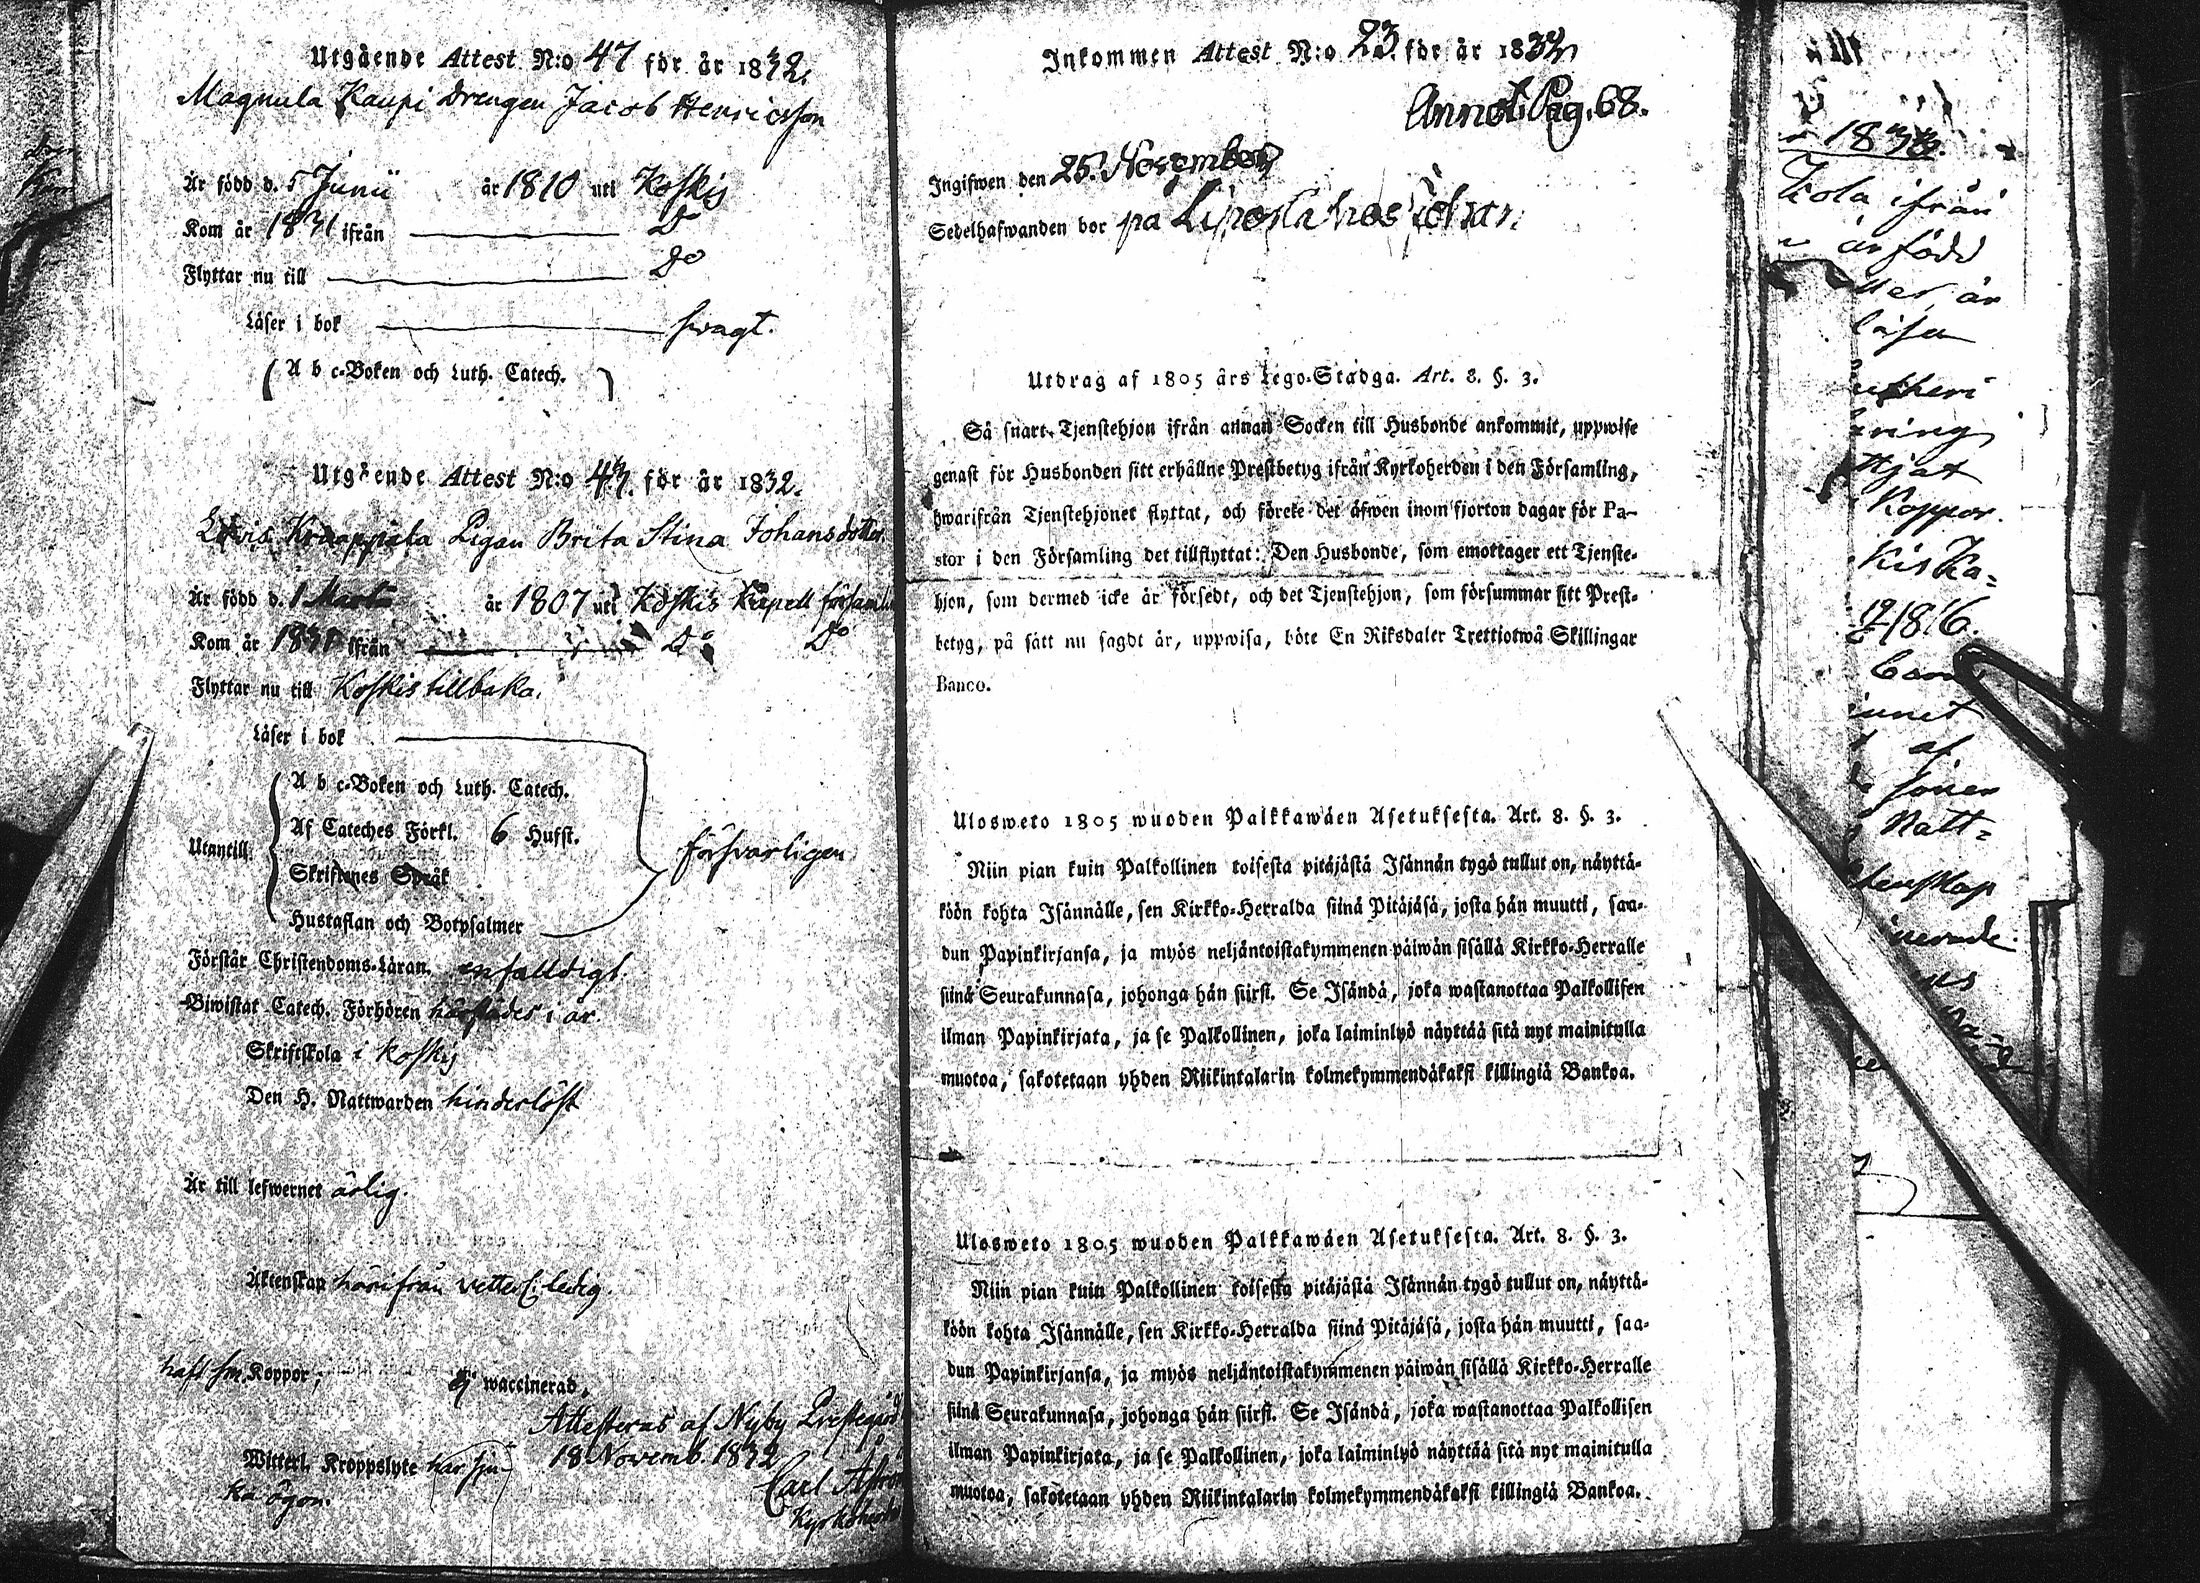 Utgående Attest N:o 47 för år 1832.
Magnula Kaupi Drengen Jacob Henricsson
Är född d. 5 Junii år 1810 uti Koskis
Kom år 1831 ifrån D
Flyttar nu till Do
Läser i bok swagt.
A b c-Boken och Luth. Catech.
Utgående Attest N:o för år 1832.
Pigan Brita Stina Johansdotter
Är född d. 1 Martii år 1807 uti Koskis Kapell församl
Kom år 1831 ifrån Do Do
Flyttar nu till Koskis tillbaka.
Läser i bok
A b c-Boken och Luth. Catech.
Af Cateches Förkl. 6 Hufst.
Utantill försvarligen
Skriftenes Språk
Hustaflan och Botpsalmer
Förstår Christendoms-Läran. enfaldigt
Biwistat Catech. Förhören härstädes i år.
Skriftskola i Koskis
Den H. Nattwarden hinderlöst
Är till lefwernet ärlig.
Äktenskap härifrån vetterl: ledig.
haft sm. Koppor; ej waccinerad,
Attesteras af Nyby Prestegård
18 Novemb. 1832
Witterl. Kroppslyte har sju-
ka ögon.
Carl
Kyrkoherde
Inkommen Attest N:o 23. för år 1832
Annot. Pag. 68.
Ingifwen den 25. November
Sedelhafwanden bor på Liposta hos
Utdrag af 1805 års Lego-Stadga. Art. 8. §. 3.
Så snart Tjenstehjon ifrån annan Socken till Husbonde ankommit, uppwise
genast för Husbonden sitt erhållne Prestbetyg ifrån Kyrkoherden i den Församling,
hwarifrån Tjenstehjonet flyttat, och förete det äfwen inom fjorton dagar för Pa-
stor i den Församling det tillflyttat: Den Husbonde, som emottager ett Tjenste-
hjon, som dermed icke är försedt, och det Tjenstehjon, som försummar sitt Prest-
betyg, på sätt nu sagdt är, uppwisa, böte En Riksdaler Trettiotwå Skillingar
Banco.
Ulosweto 1805 wuoden Palkkawäen Asetuksesta. Art. 8. §. 3.
Niin pian kuin Palkollinen toisesta pitäjästä Isännän tygö tullut on, näyttä-
köön kohta Isännälle, sen Kirkko-Herralda siinä Pitäjäsä, josta hän muutti, saa-
dun Papinkirjansa, ja myös neljäntoistakymmenen päiwän sisällä Kirkko-Herralle
siinä Seurakunnasa, johonga hän siirsi. Se Isändä, joka wastanottaa Palkollisen
ilman Papinkirjata, ja se Palkollinen, joka laiminlyö näyttää sitä nyt mainitulla
muotoa, sakotetaan yhden Riikintalarin kolmekymmendäkaksi killingiä Bankoa.
Ulosweto 1805 wuoden Palkkawäen Asetuksesta. Art. 8. §. 3.
Niin pian kuin Palkollinen toisesta pitäjästä Isännän tygö tullut on, näyttä-
köön kohta Isännälle, sen Kirkko-Herralda siinä Pitäjäsä, josta hän muutti, saa-
dun Papinkirjansa, ja myös neljäntoistakymmenen päiwän sisällä Kirkko-Herralle
siinä Seurakunnasa, johonga hän siirsi. Se Isändä, joka wastanottaa Palkollisen
ilman Papinkirjata, ja se Palkollinen, joka laiminlyö näyttää sitä nyt mainitulla
muotoa, sakotetaan yhden Riikintalarin kolmekymmendäkaksi killingiä Bankoa.
1833.
ifrån
är född
är
läsa
Koppor.
Kis Ka-
1816.
af
Natt-